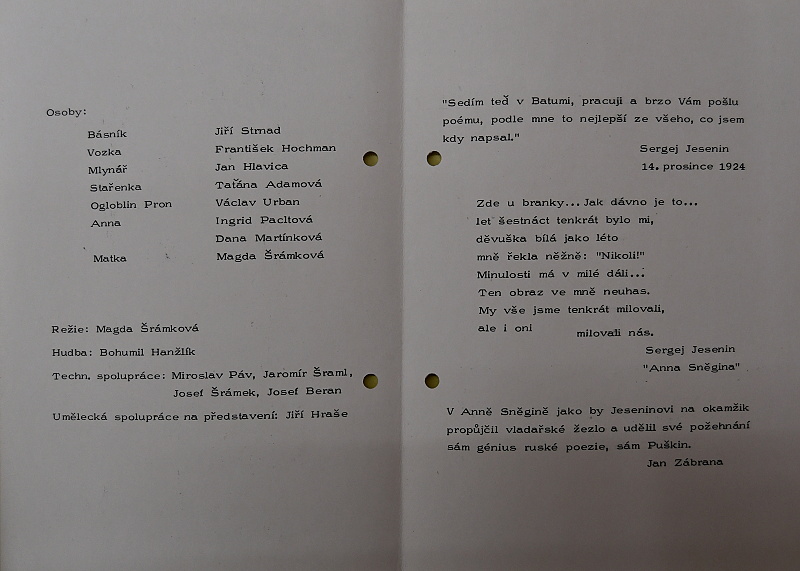 Osoby:
Básník Jiří Strnad
Vozka František Hochman
Mlynář Jan Hlavica
Stařenka Taťána Adamová
Ogloblin Pron Václav Urban
Anna Ingrid Pacltová
Dana Martínková
Matka Magda Šrámková
Režie: Magda Šrámková
Hudba: Bohumil Hanžlík
Techn. spolupráce: Miroslav Páv, Jaromír Šraml,
Josef Šrámek, Josef Beran
Umělecká spolupráce na představení: Jiří Hraše
"Sedím teď v Batumi, pracuji a brzo Vám pošlu
poému, podle mne to nejlepší ze všeho, co jsem
kdy napsal."
Sergej Jesenin
14. prosince 1924
Zde u branky... Jak dávno je to...
let šestnáct tenkrát bylo mi,
děvuška bílá jako léto
mně řekla něžně: "Nikoli!"
Minulosti má v milé dáli...
Ten obraz ve mně neuhas.
My vše jsme tenkrát milovali,
ale i oni milovali nás.
Sergej Jesenin
"Anna Sněgina"
V Anně Sněgině jako by Jeseninovi na okamžik
propůjčil vladařské žezlo a udělil své požehnání
sám génius ruské poezie, sám Puškin.
Jan Zábrana